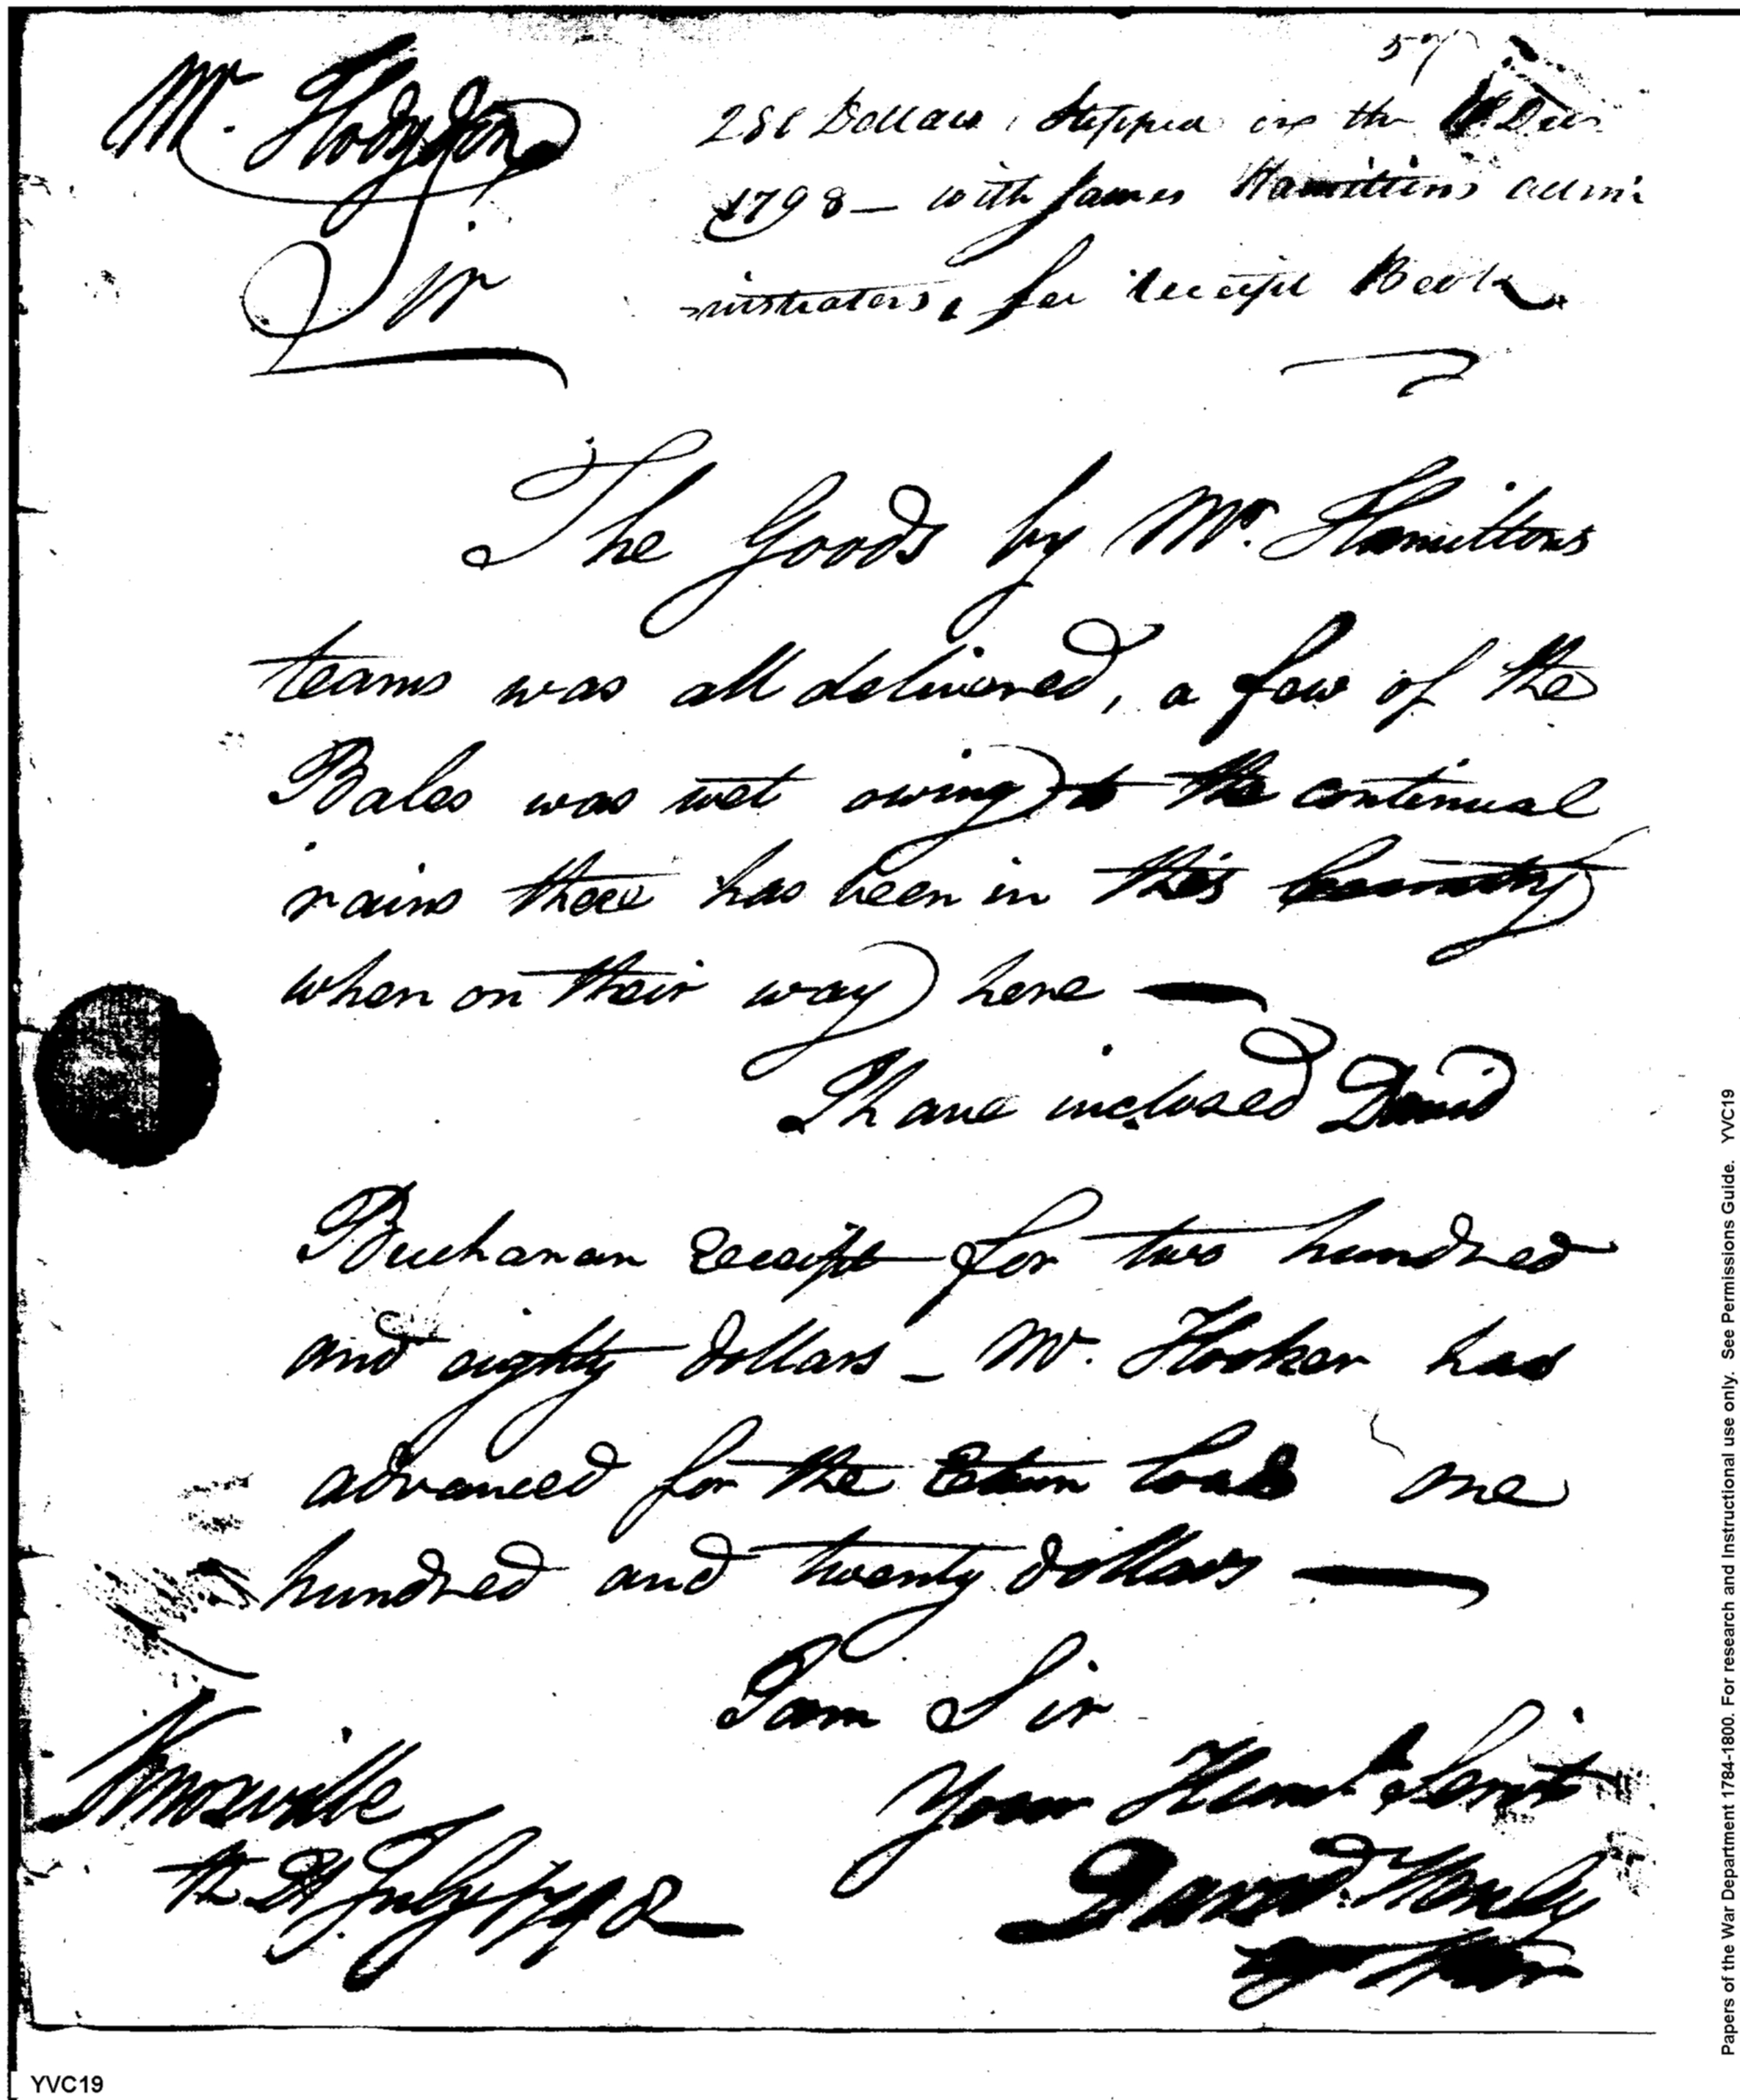 57
Mr. Hodgdon
Sir
280 Dollars, Stopped on the Decr.
1798 — with James Hamiltons admi-
-nistrators, see receipt Book
The Goods by Mr. Hamiltons
teams was all delivered, a few of the
Bales was wet owing to the continual
rains there has been in this Country
when on their way here —
I have inclosed David
Buchanan Receipt for two hundred
and eighty dollars — Mr. Hooker has
advanced for the Return load one
hundred and twenty dollars —
I am Sir
Your Humb Servt
David Henley
Knoxville
the July 1798 —
YVC19
Papers of the War Department 1784-1800. For research and Instructional use only. See Permissions Guide. YVC19